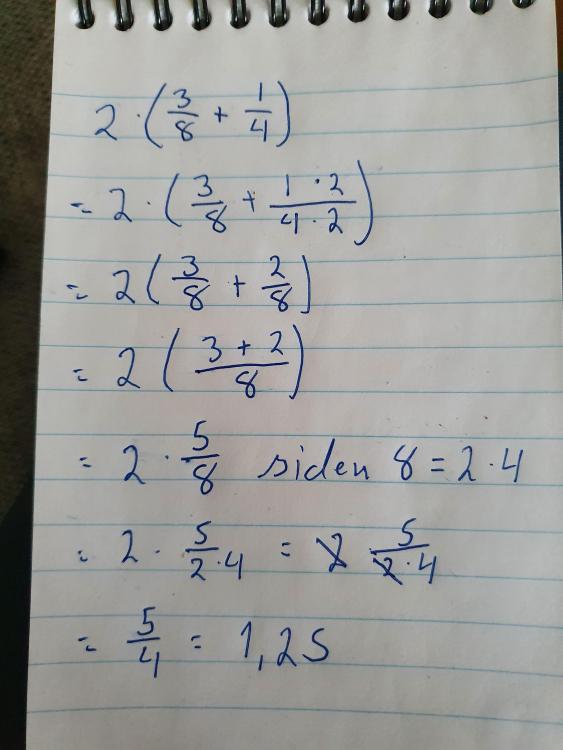 2 · (3/8 + 1/4)
= 2 · (3/8 + 1 · 2/4 · 2)
= 2 (3/8 + 2/8)
= 2 (3 + 2/8)
= 2 · 5/8 siden 8 = 2 · 4
= 2 · 5/2 · 4 = 2 5/2 · 4
= 5/4 = 1,25